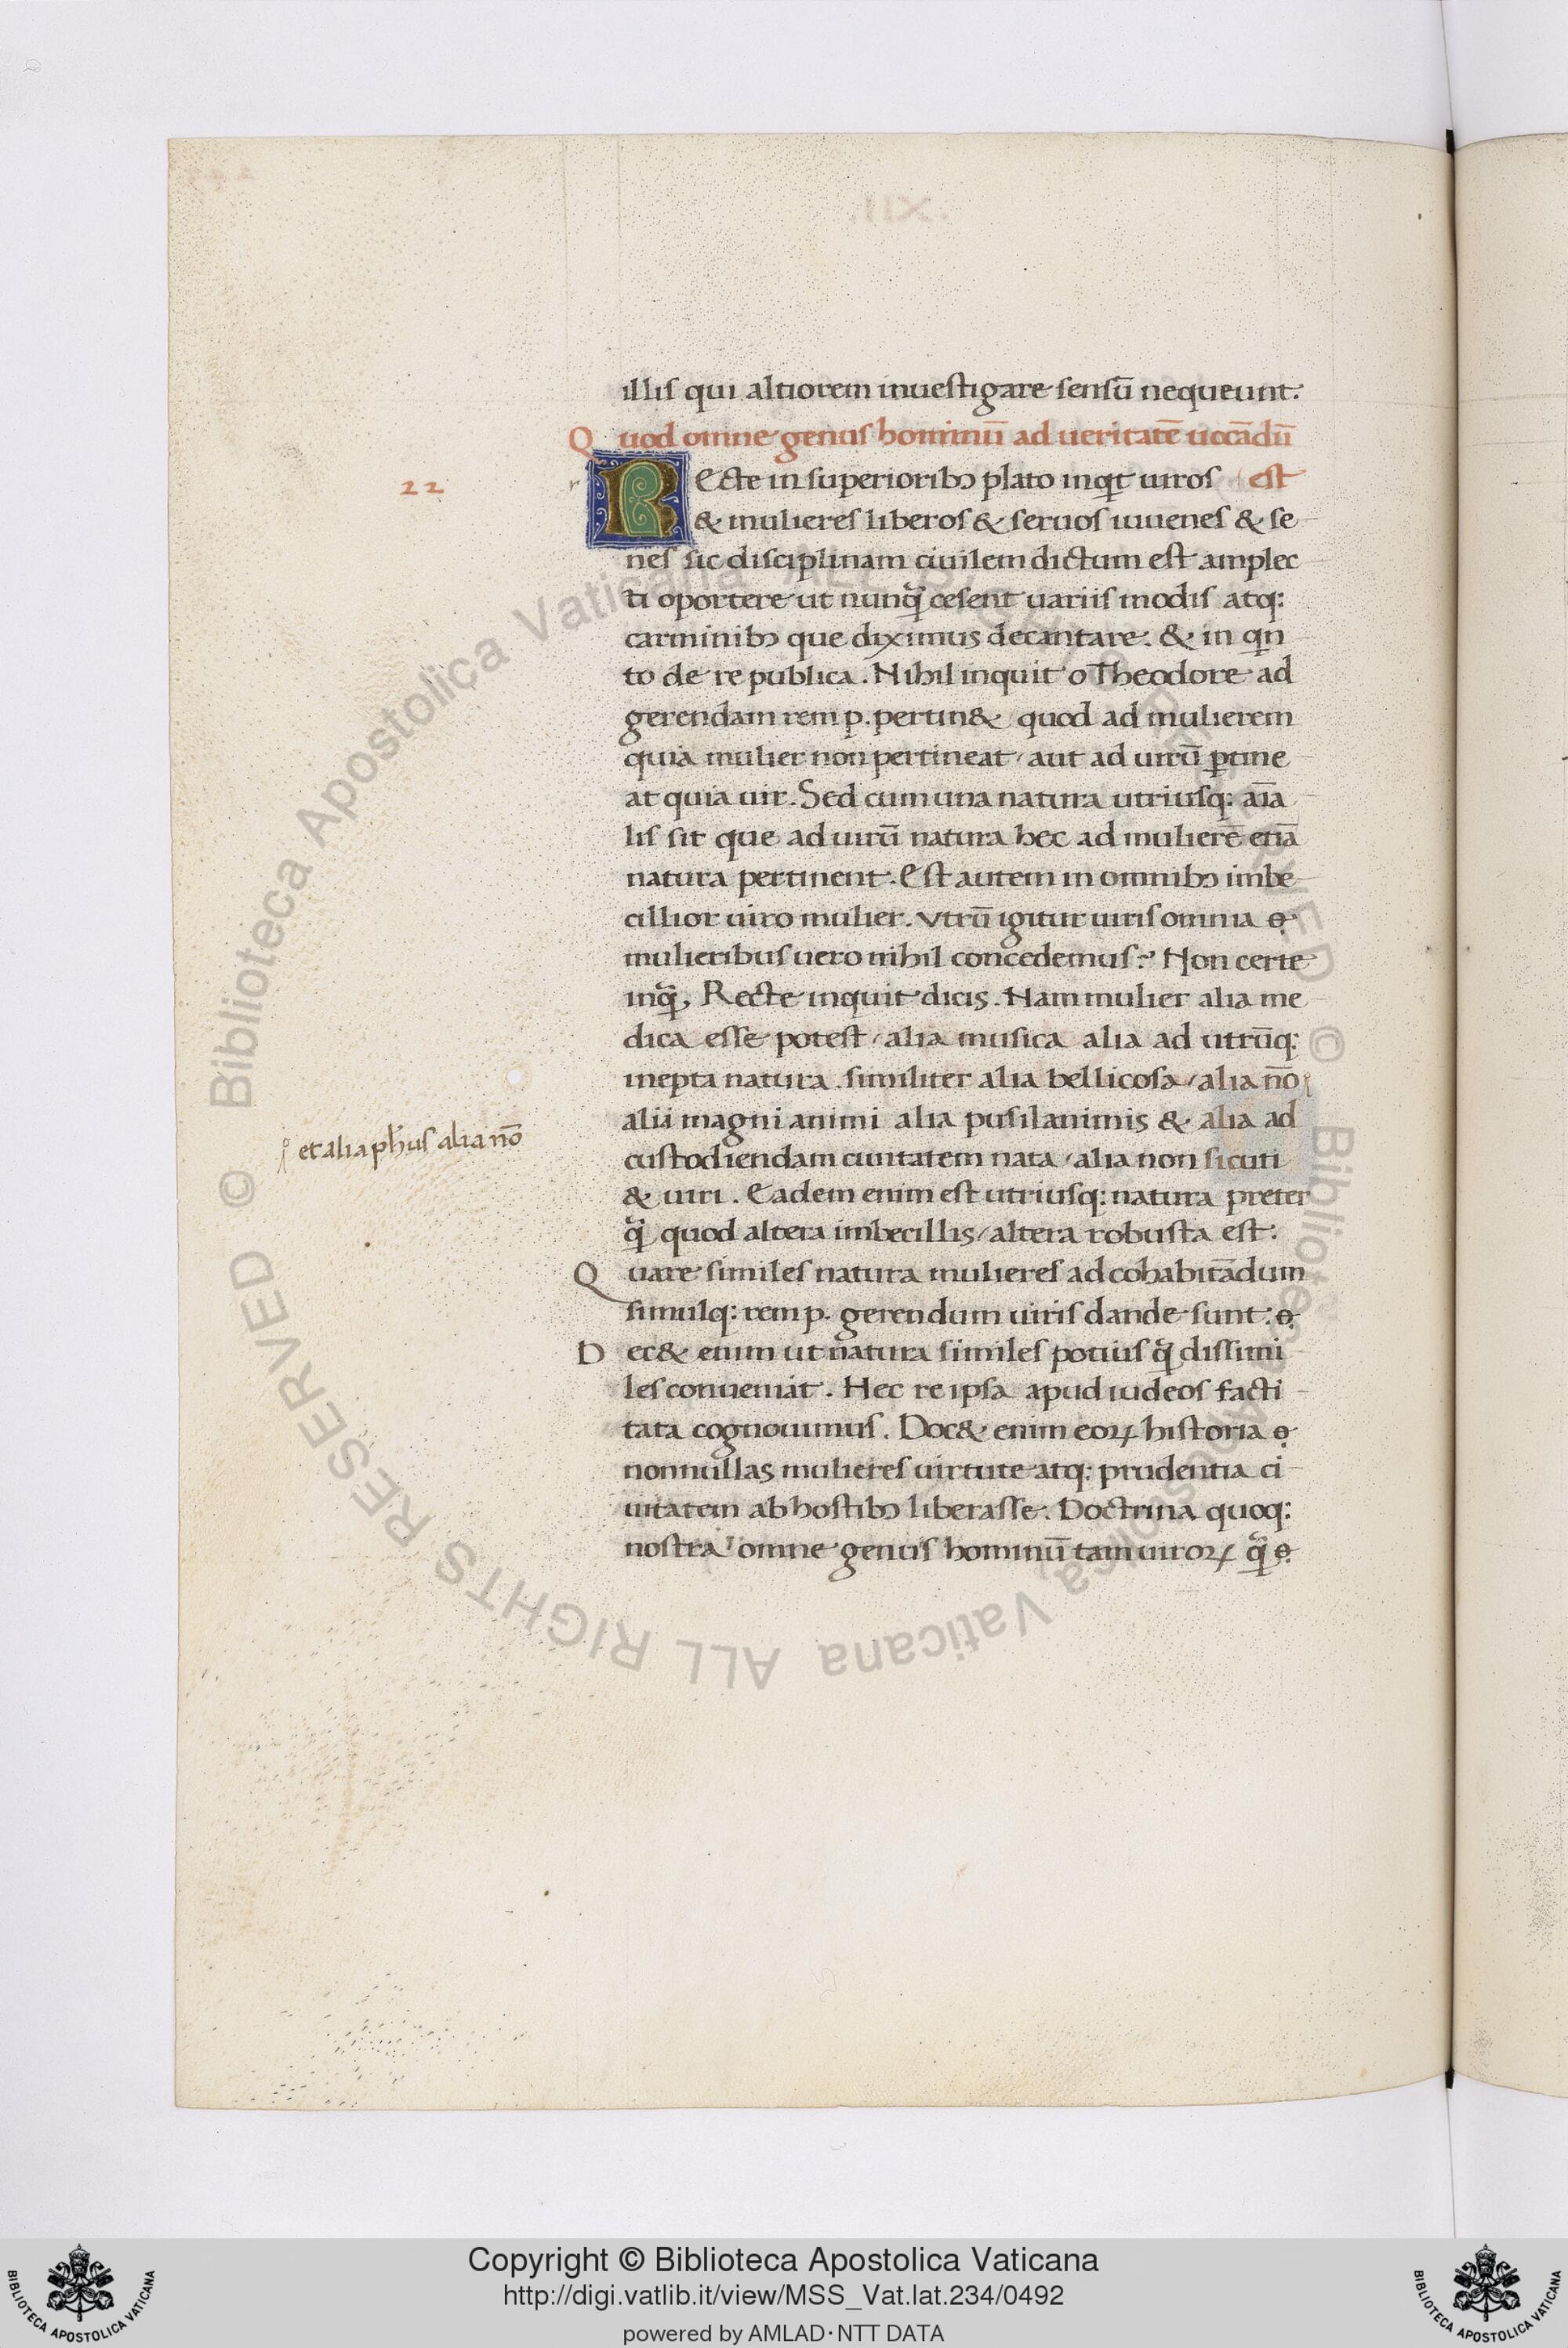 .XII.
illis qui altiorem inuestigare sensū nequeunt.
Quod omne genus hominū ad ueritatē uocādū
est
22
r
Recte in superioribꝫ plato inqͥt uiros
& mulieres liberos & seruos iuuenes & se
nes sic disciplinam ciuilem dictum est amplec
ti oportere ut nunqᷓ cesent uariis modis atq:
carminibꝫ que diximus decantare. & in qͥn
to de re publica. Nihil inquit o Theodore ad
gerendam rem p. pertin& / quod ad mulierem
quia mulier non pertineat / aut ad uirū ꝑtine
at quia uir. Sed cum una natura utriusq: aīa
lis sit que ad uirū natura hec ad mulierē etiā
natura pertinent. Est autem in omnibꝫ imbe
cillior uiro mulier. Vtrū igitur uiris omnia
mulieribus uero nihil concedemus? Non certe
inqᷓ, Recte inquit dicis. Nam mulier alia me
dica esse potest / alia musica alia ad utrūq:
inepta natura. similiter alia bellicosa / alia nō
et alia phūs alia nō
alii magni animi alia pusilanimis & alia ad
custodiendam ciuitatem nata / alia non sicuti
& uiri. Eadem enim est utriusq: natura preter
qᷓ quod altera imbecillis / altera robusta est.
Quare similes natura mulieres ad cohabitādum
simulq: rem p. gerendum uiris dande sunt.
Dec& enim ut natura similes potius qᷓ dissimi
les conueniāt. Hec re ipsa apud iudeos facti
tata cognouimus. Doc& enim eoꝝ historia
nonnullas mulieres uirtute atq: prudentia ci
uitatem ab hostibꝫ liberasse. Doctrina quoq:
nostra omne genus hominū tam uiroꝝ qᷓ
© Biblioteca Apostolica Vaticana ALL RIGHTS RESERVED © Biblioteca Apostolica Vaticana ALL RIGHTS RESERVED
Copyright © Biblioteca Apostolica Vaticana
http://digi.vatlib.it/view/MSS_Vat.lat.234/0492
powered by AMLAD·NTT DATA
BIBLIOTECA APOSTOLICA VATICANA
BIBLIOTECA APOSTOLICA VATICANA